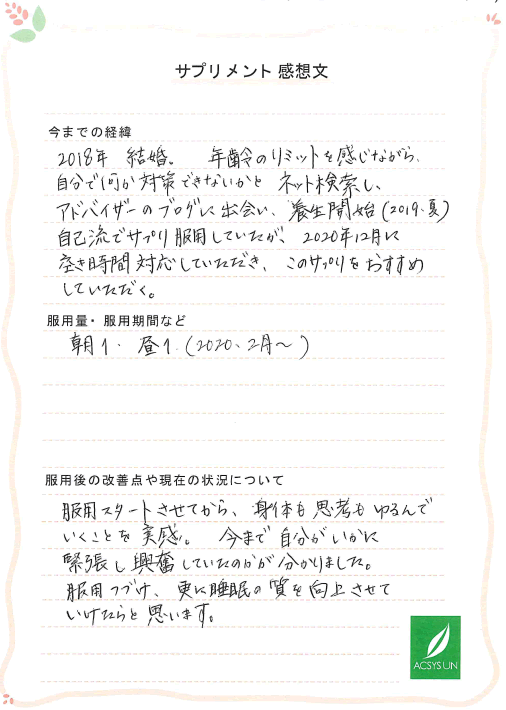 サプリメント 感想文
今までの経緯
2018年 結婚。 年齢のリミットを感じながら、
自分で何か対策できないかと ネット検索し、
アドバイザーのブログに出会い、養生開始(2019.夏)
自己流でサプリ服用していたが、2020年12月に
空き時間対応していただき、このサプリをおすすめ
していただく。
服用量・服用期間など
朝1. 昼1.(2020、2月〜 )
服用後の改善点や現在の状況について
服用スタートさせてから、身体も思考もゆるんで
いくことを実感。 今まで自分がいかに
緊張し興奮していたのかが分かりました。
服用つづけ、更に睡眠の質を向上させて
いけたらと思います。
ACSYSUN